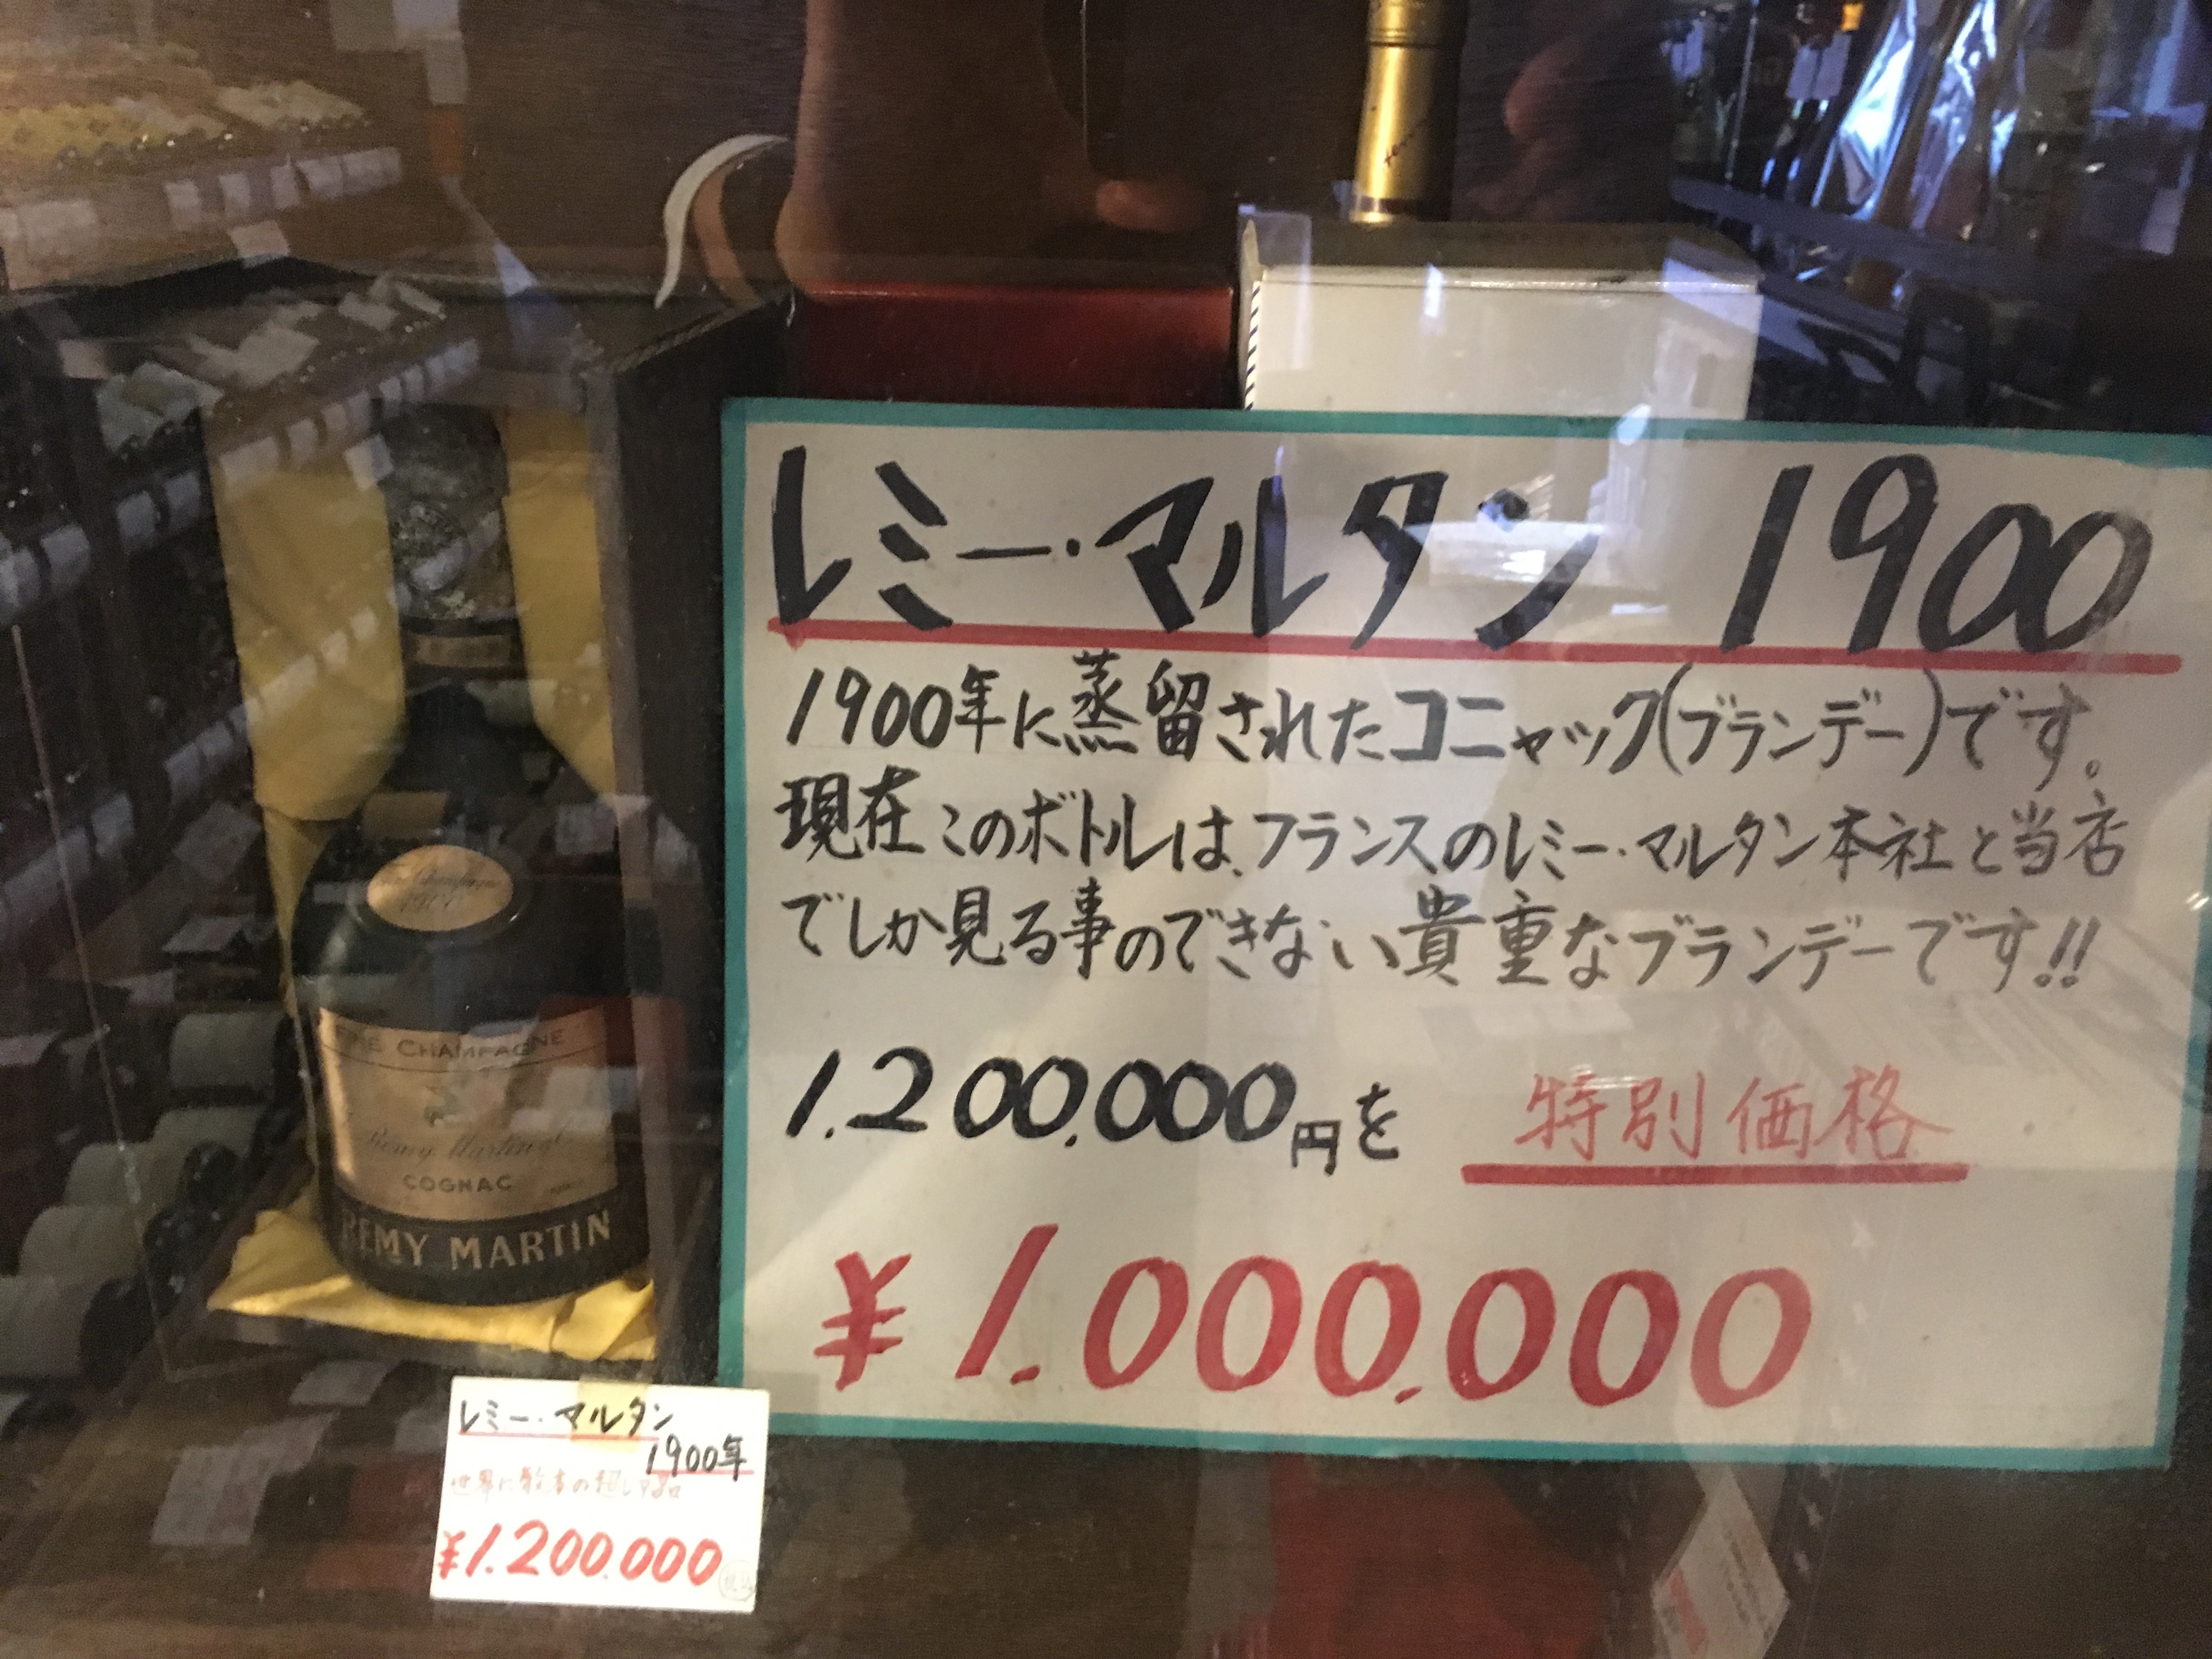 レミー・マルタン 1900
1900年に蒸留されたコニャック(ブランデー)です。
現在このボトルは、フランスのレミー・マルタン本社と当店
でしか見る事のできない貴重なブランデーです!!
1.200.000円を 特別価格
¥1.000.000
1900
FINE CHAMPAGNE
Rémy Martin
COGNAC
REMY MARTIN
レミー・マルタン
1900年
世界に数本の超レア品
¥1.200.000